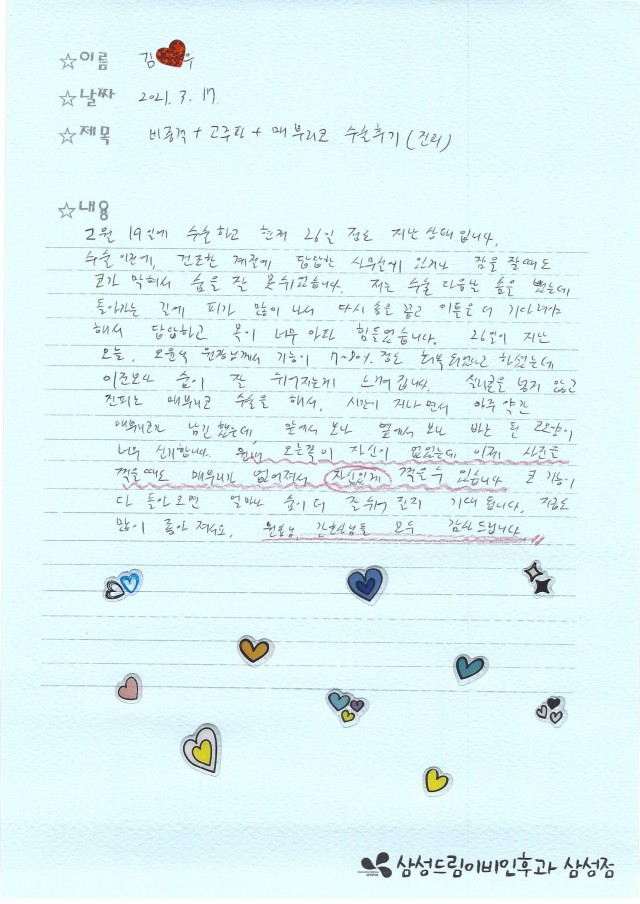 ☆이름 김 우
☆날짜 2021. 3. 17.
☆제목 비중격 + 고주파 + 매부리코 수술후기 (진피)
☆내용
2월 19일에 수술하고 현재 26일 정도 지난 상태입니다.
수술 이전에, 건조한 계절에 답답한 사무실에 있거나 잠을 잘때도
코가 막혀서 숨을 잘 못쉬었습니다. 저는 수술 다음날 솜을 뺐는데
돌아가는 길에 피가 많이 나서 다시 솜을 꼽고 이틀을 더 기다려야
해서 답답하고 목이 너무 아파 힘들었습니다. 26일이 지난
오늘, 오윤석 원장님께서 기능이 7~80% 정도 회복되었다고 하셨는데
이전보다 숨이 잘 쉬어지는게 느껴집니다. 실리콘을 넣지 않고
진피로 매부리코 수술을 해서, 시간이 지나면서 아주 약간
매부리코가 남긴 했는데, 앞에서 보나 옆에서 보나 바뀐 코모양이
너무 신기합니다. 오른쪽이 자신이 없었는데 이제 사진을
찍을때도 매부리가 없어져서 자신있게 찍을수 있습니다 코 기능이
다 돌아오면 얼마나 숨이 더 잘쉬어 질지 기대 됩니다. 지금도
많이 좋아 졌어요. 원장님, 간호사님들 모두 감사드립니다
삼성드림이비인후과 삼성점